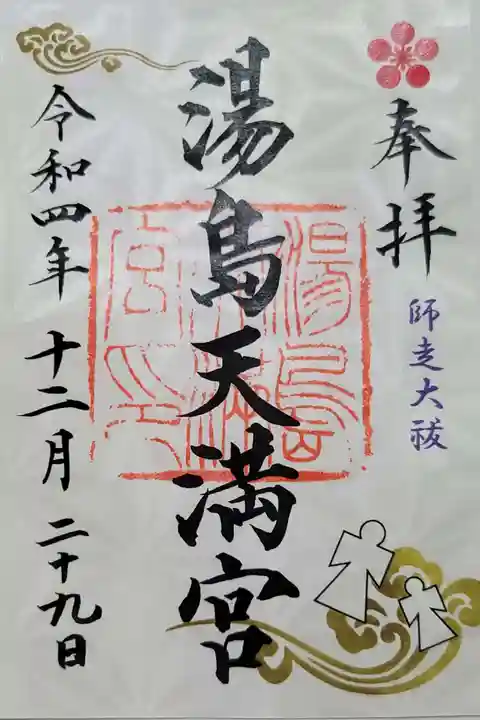 奉拝
師走大祓
湯島天満宮
令和四年 十二月 二十九日